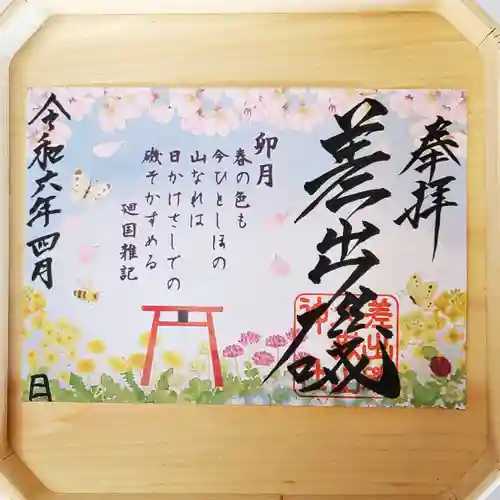 奉拝
差出磯
卯月
春の色も
今ひとしほの
山なれは
日かけさしでの
磯そかすめる
廻国雑記
令和六年四月
日